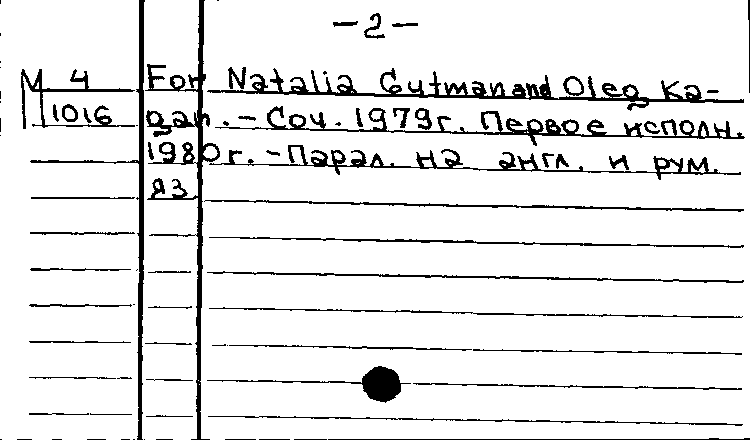 -2-
М 4 For Natalia Gutman and Oleg Ka-
1016 gan. - Соч. 1979г. Первое исполн.
1980г. - Парал. на англ. и рум.
яз